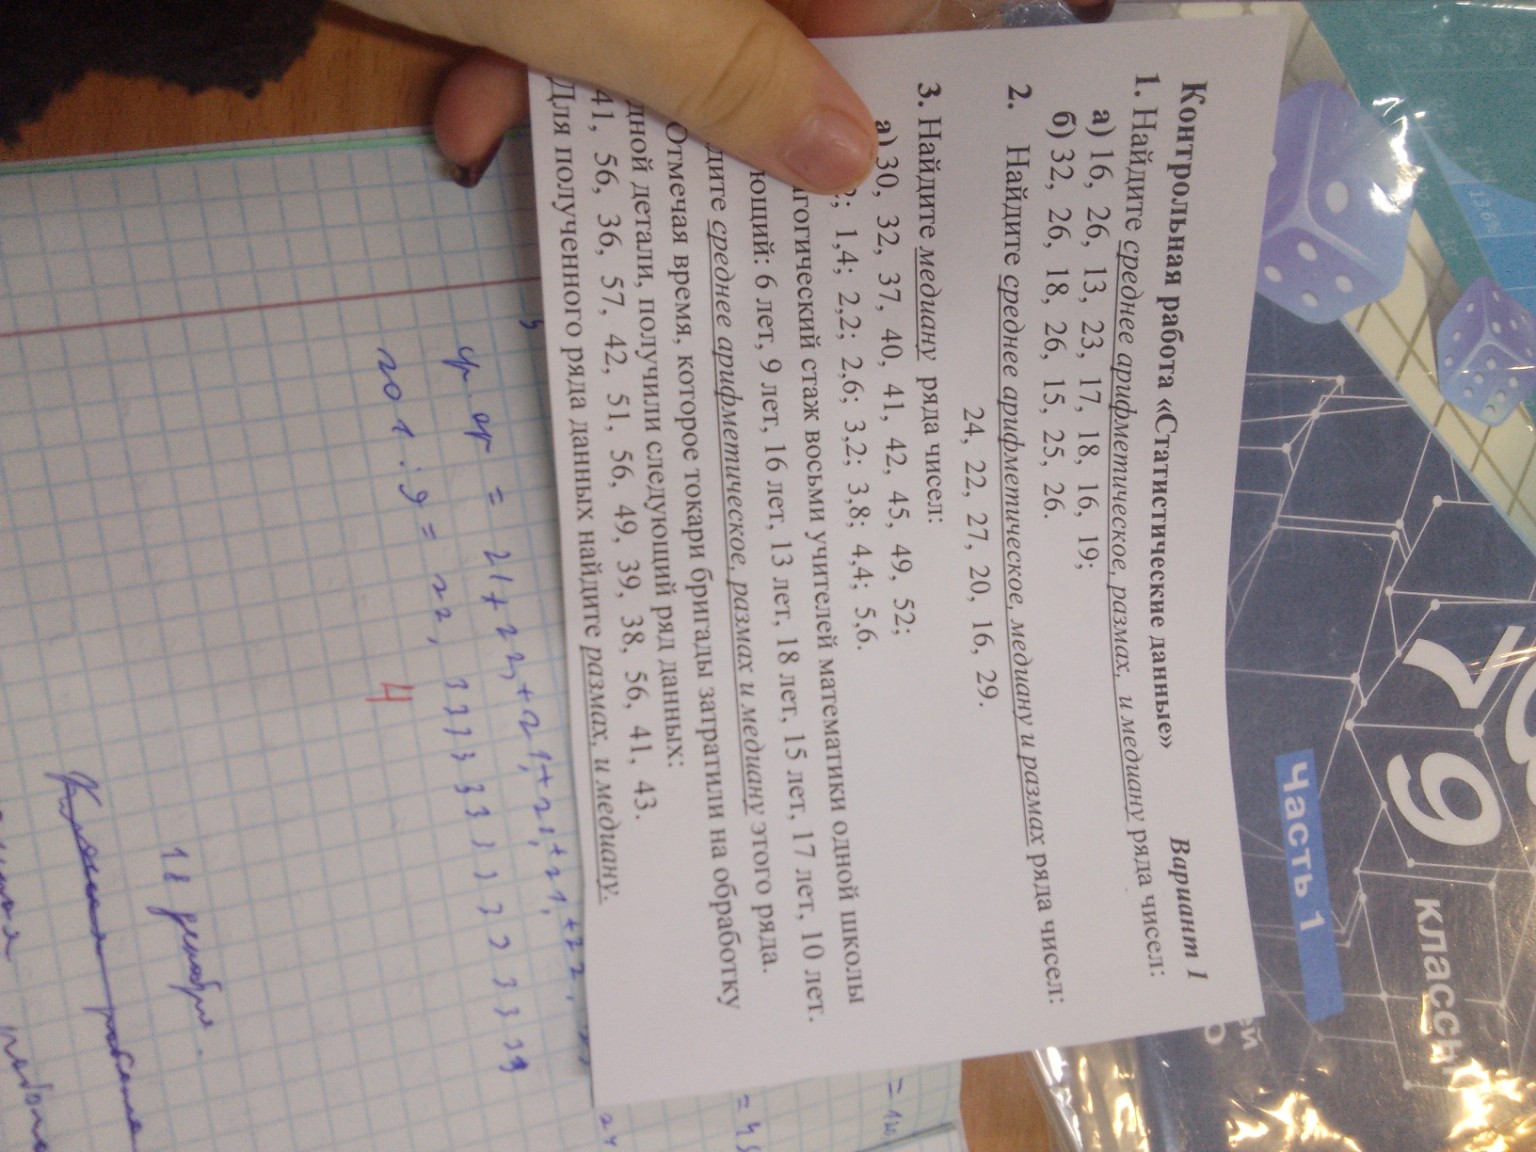 Контрольная работа «Статистические данные» Вариант 1
1. Найдите среднее арифметическое, размах, и медиану ряда чисел:
а) 16, 26, 13, 23, 17, 18, 16, 19;
б) 32, 26, 18, 26, 15, 25, 26.
2. Найдите среднее арифметическое, медиану и размах ряда чисел:
24, 22, 27, 20, 16, 29.
3. Найдите медиану ряда чисел:
а) 30, 32, 37, 40, 41, 42, 45, 49, 52;
; 1,4; 2,2; 2,6; 3,2; 3,8; 4,4; 5,6.
агогический стаж восьми учителей математики одной школы
ющий: 6 лет, 9 лет, 16 лет, 13 лет, 18 лет, 15 лет, 17 лет, 10 лет.
дите среднее арифметическое, размах и медиану этого ряда.
Отмечая время, которое токари бригады затратили на обработку
дной детали, получили следующий ряд данных:
41, 56, 36, 57, 42, 51, 56, 49, 39, 38, 56, 41, 43.
Для полученного ряда данных найдите размах, и медиану.
7 9 классы
Часть 1
ср. ар = 21+22,+21,+21,+21,+22,
201:9=22,
4
18 декабря.